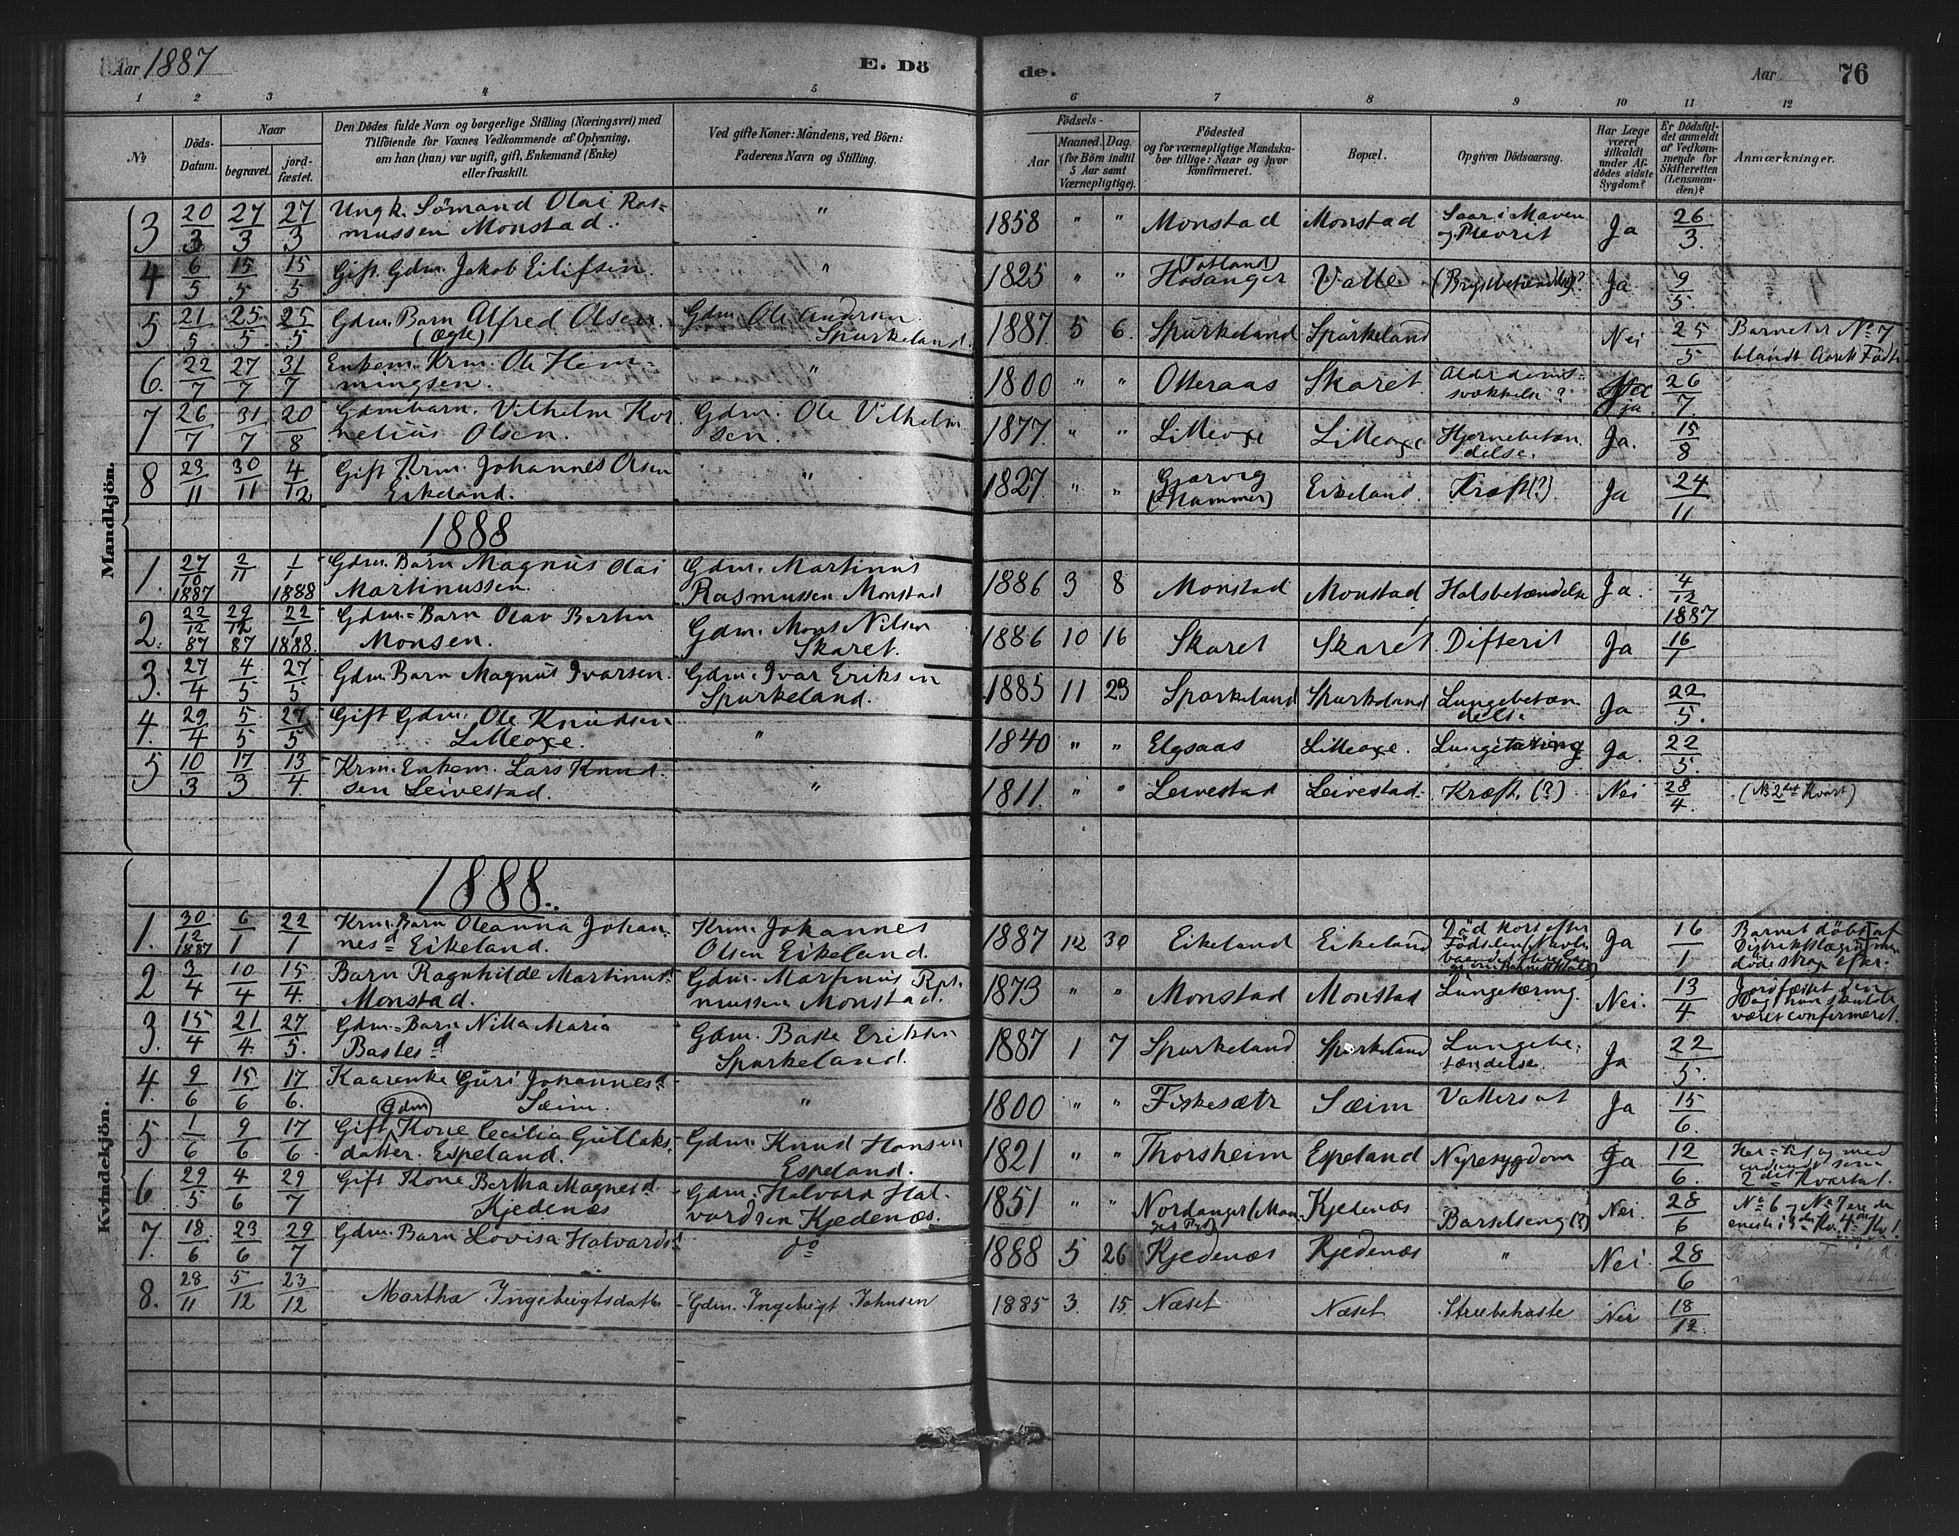 Aar 1887 E. Dö
de. Aar 76
1 2 3 4 5 6 7 8 9 10 11 12
No
Döds-Datum.
Naar
begravet.
jord-fæstet.
Den Dödes fulde Navn og borgerlige Stilling (Næringsvei) med
Tilföiende for Voxnes Vedkommende af Oplysning,
om han (hun) var ugift, gift, Enkemand (Enke)
eller fraskilt.
Ved gifte Koner: Mandens, ved Börn:
Faderens Navn og Stilling.
Födsels-
Aar
Maaned. Dag.
(for Börn indtil
5 Aar samt
Værnepligtige).
Födested
og for værnepligtige Mandsku-
ber tillige: Naar og hvor
konfirmeret.
Bopæl.
Opgiven Dödsaarsag.
Har Læge
været
tilkaldt
under Af-
dödes sidste
Sygdom?
Er Dödsfal-
det anmeldt
af Vedkom-
mende for
Skifteretten
(Lensman-
den)?
Anmærkninger.
Mandkjön.
3 20/3 27/3 27/3 Ungk. Sömand Olai Ras=
mussen Monstad. " 1858 " " Monstad Monstad Saar i Maven
og Plevrit Ja 26/3.
4 6/5 15/5 15/5 Gift Gdm. Jakob Eilifsen. " 1825 " " Hosanger Valle (Brystbetændelse)? Ja 9/5.
5 21/5. 25/5. 25/5 Gdm. Barn Alfred Olsen.
(Ægte) Gdm. Ole Andersen
Spurkeland. 1887 5 6. Spurkeland Spurkeland Nei 25/5 Barnet er No 7
blandt Aarets Födte
6. 22/7 27/7 31/7 Enkem. Krm. Ole Hem=
mingsen. " 1800 " " Otteraas Skaret. Alderdoms-
svækkelse ? ja. 26/7.
7 26/7 31/7 20/8 Gdmbarn. Vilhelm Kor
nelius Olsen. Gdm. Ole Vilhelm
sen. 1877. " " Lilleoxe Lilleoxe Hjernebetæn
delse. Ja. 15/8
8 23/11 30/11 4/12 Gift Krm. Johannes Olsen
Eikeland. " 1827 " " Gjervig
(Hammer) Eikeland. Kræft(?) Ja 24/11
1888
1. 27/10 1887 2/11 1/1 1888 Gdm. Barn Magnus Olai
Martinussen. Gdm. Martinus
Rasmussen Monstad 1886 3 8 Monstad Monstad Halsbetændelse Ja. 4/12 1887
2. 22/12 87 29/12 87 22/1 1888. Gdm.=Barn Olav Bertin
Monsen. Gdm. Mons Nilsen
Skaret. 1886 10 16 Skaret Skaret. Difterit Ja 16/1
3. 27/4 4/5 27/5 Gdm. Barn Magnus Ivarsen. Gdm. Ivar Eriksen
Spurkeland. 1885 11 23 Spurkeland Spurkeland Lungebetæn
delse Ja 22/5.
4. 29/4 5/5 27/5 Gift Gdm. Ole Knudsen
Lilleoxe. " 1840 " " Elgsaas Lilleoxe. Lungetæring Ja. 22/5.
5 10/3 17/3 13/4 Krm. Enkem. Lars Knud-
sen Leivestad. " 1811. " " Leivestad Leivestad. Kræft. (?) Nei 28/4. (No 2det Kvart)
Kvindekjön.
1888.
1. 30/12 1887 6/1 22/1 Krm. Barn Oleanna Johan-
nesd Eikeland. Krm. Johannes
Olsen Eikeland. 1887 12 30 Eikeland Eikeland Död kort efter
Födselen Ja 16/1 Barnet döbt af
Distriktslægen men
döde strax efter.
2 3/4 10/4 15/4. Barn Ragnhilde Martinusd
Monstad. Gdm. Martinus Ras-
mussen Monstad. 1873 " " Monstad Monstad Lungetæring. Nei. 13/4. Jordfæstet den
Dag hun skulde
været confirmeret.
3. 15/4 21/4. 27/5. Gdm=Barn Nilla Maria
Bastesd Gdm. Baste Eriksen
Spurkeland. 1887 1 7 Spurkeland Spurkeland Lungebe=
tændelse. Ja 22/5.
4. 9/6 15/6 17/6. Kaarenke Guri Johannesd
Sæim. " 1800 " " Fiskesætr Sæim Vattersot Ja 15/6.
5 1/6 9/6 17/6 Gift Gdm Kone Cecilia Gullaks-
datter Espeland. Gdm. Knud Hansen
Espeland. 1821 " " Thorsheim Espeland Nyresygdom Ja 12/6. Her=til og med
2det Kvartal.
6 29/5 4/6 29/7 Gift Kone Bertha Magnesd
Kjedenæs Gdm. Halvard Hal-
vardsen Kjedenæs. 1851 " " Nordanger Kjedenæs Barselseng(?) Nei. 28/6 No 6 og No 7 ere de
eneste i 3die Kv.
7. 18/6 23/6 29/7 Gdm. Barn Lovisa Halvardsd do 1888 5 26 Kjedenæs Kjedenæs " Nei. 28/6
8. 28/11 5/12 23/12 Martha Ingebrigtsdatter Gdm. Ingebrigt Johnsen 1885 3. 15. Næset Næset Strubehoste Nei 18/12.